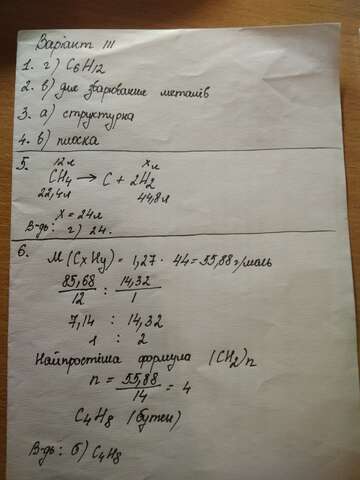 Варіант III
1. г) C6H12
2. в) для зварювання металів
3. а) структурка
4. в) плоска
5. 12л xл
CH4 → C + 2H2
22,4л 44,8л
x = 24л
В-дь: г) 24.
6. M (CxHy) = 1,27 · 44 = 55,88 г/моль
85,68/12 : 14,32/1
7,14 : 14,32
1 : 2
Найпростіша формула (CH2)n
n = 55,88/14 = 4
C4H8 (бутен)
В-дь: б) C4H8